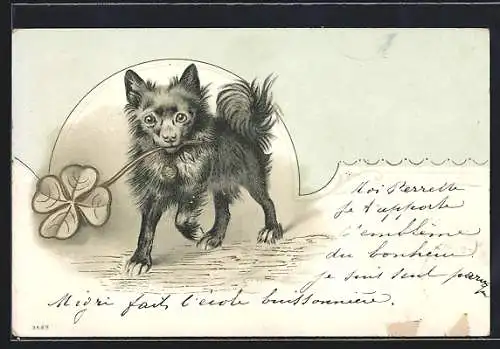 Toi Perrette
Je t'apporte
l'emblème
du bonheur
je suis seul
Migri fait l'école buissonnière.